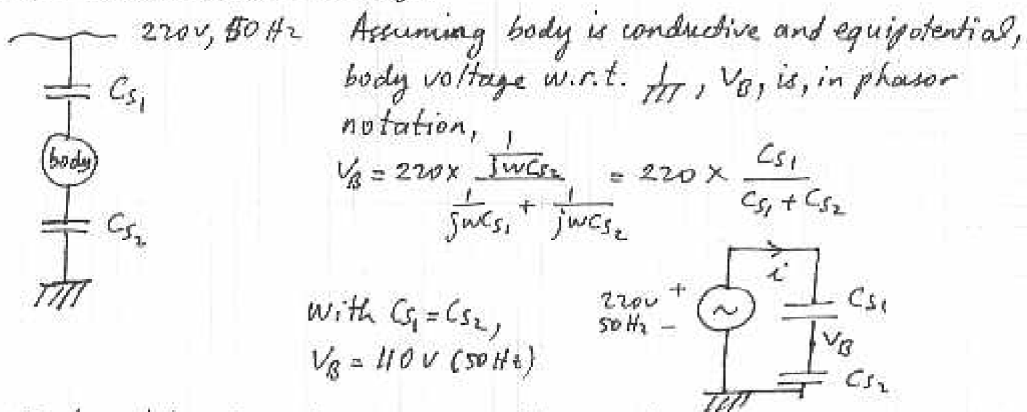 220V, 50 Hz
Assuming body is conductive and equipotential,
body voltage w.r.t. ⏚, V_B, is, in phasor
notation,
C_S1
body
C_S2
V_B = 220 × (1/(jwC_S2)) / (1/(jwC_S1) + 1/(jwC_S2)) = 220 × C_S1/(C_S1 + C_S2)
With C_S1 = C_S2,
V_B = 110 V (50 Hz)
220V
50 Hz
+
-
~
i
C_S1
V_B
C_S2